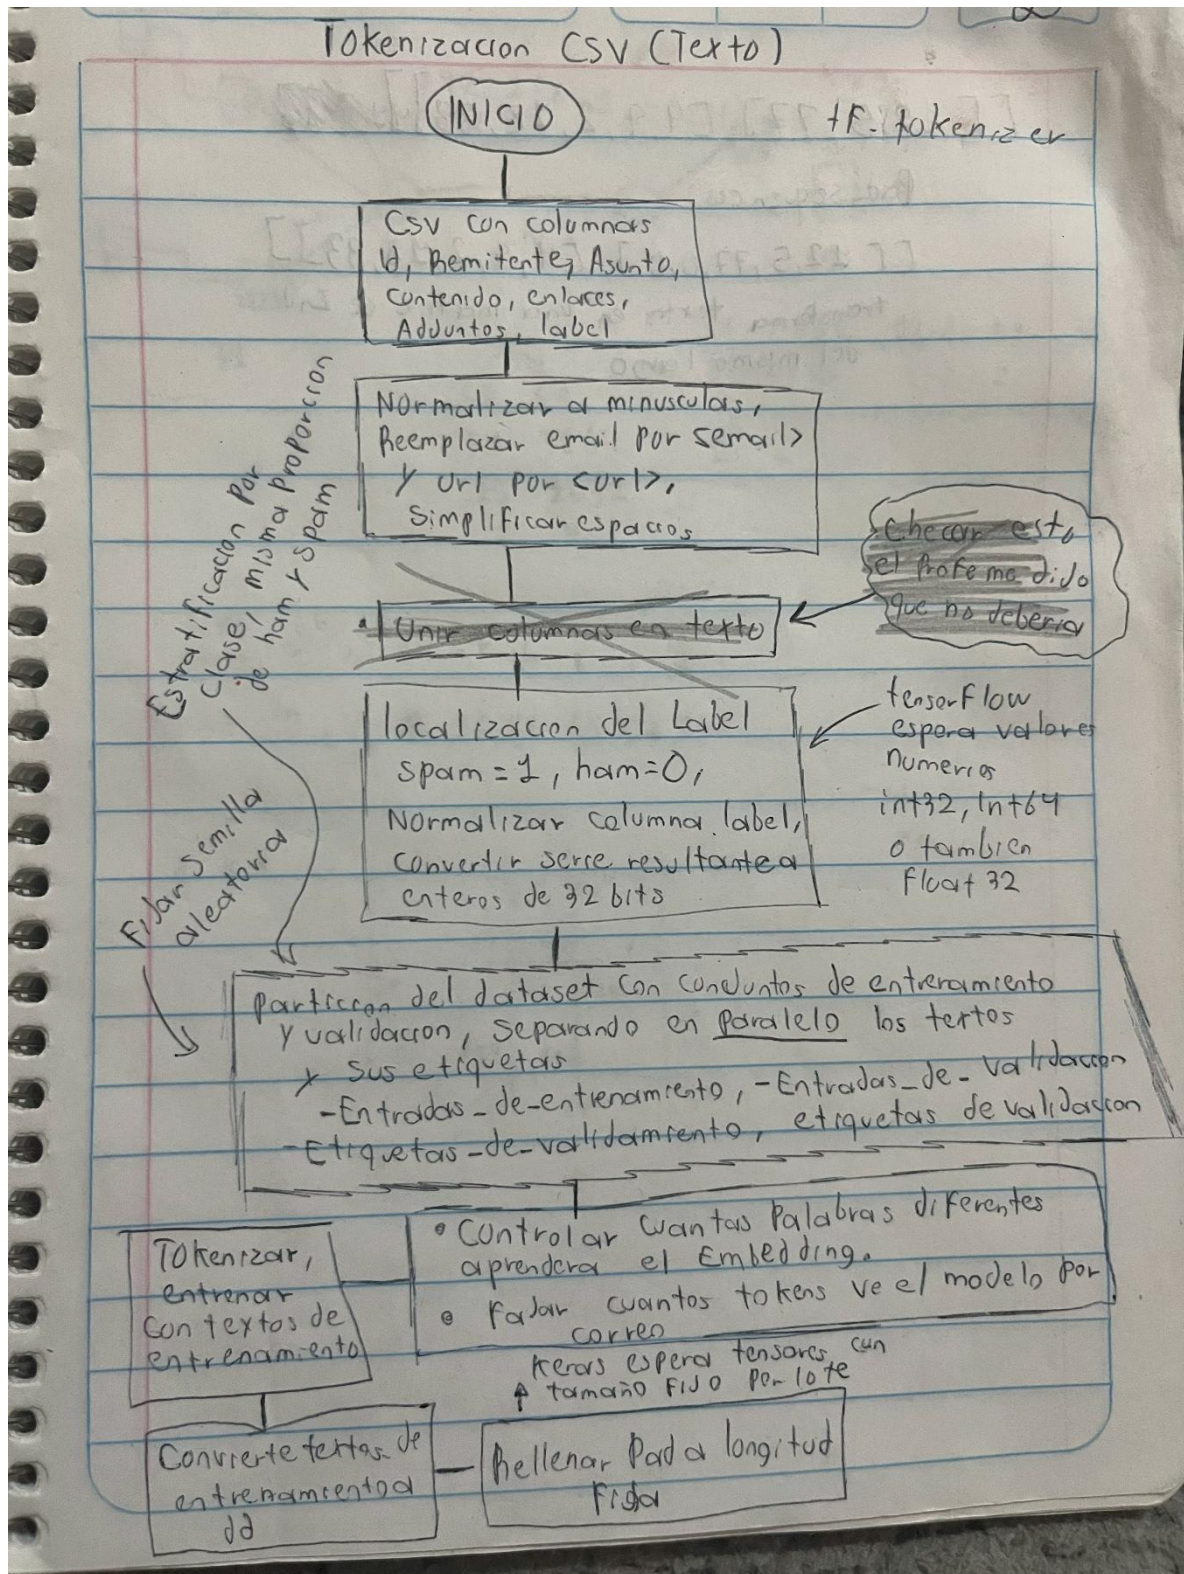 Tokenizacion CSV (Texto)
INICIO
tf. tokenizer
Csv con columnas
Id, Remitente, Asunto,
contenido, enlaces,
Adjuntos, label
Normalizar a minusculas,
Reemplazar email por <email>
y Url por <url>,
Simplificar espacios
Checar esto
el Profe me dijo
que no deberia
Unir columnas en texto
Estratificacion por
clase, misma proporcion
de ham y spam
localizacion del Label
spam = 1, ham=0,
Normalizar columna label,
convertir serie resultante a
enteros de 32 bits
tensorflow
espera valores
numericos
int32, Int64
o tambien
Float 32
Fijar semilla
aleatoria
particion del dataset con conjuntos de entrenamiento
y validacion, separando en paralelo los textos
y sus etiquetas
-Entradas_de_entrenamiento, -Entradas_de_validacion
-Etiquetas_de_validamiento, etiquetas de validacion
Tokenizar,
entrenar
con textos de
entrenamiento
• Controlar cuantas Palabras diferentes
aprendera el Embedding.
• Fajar cuantos tokens ve el modelo por
correo
Keras espera tensores con
tamaño FIJO por lote
Convierte textos de
entrenamiento a
Rellenar Pad a longitud
Fija